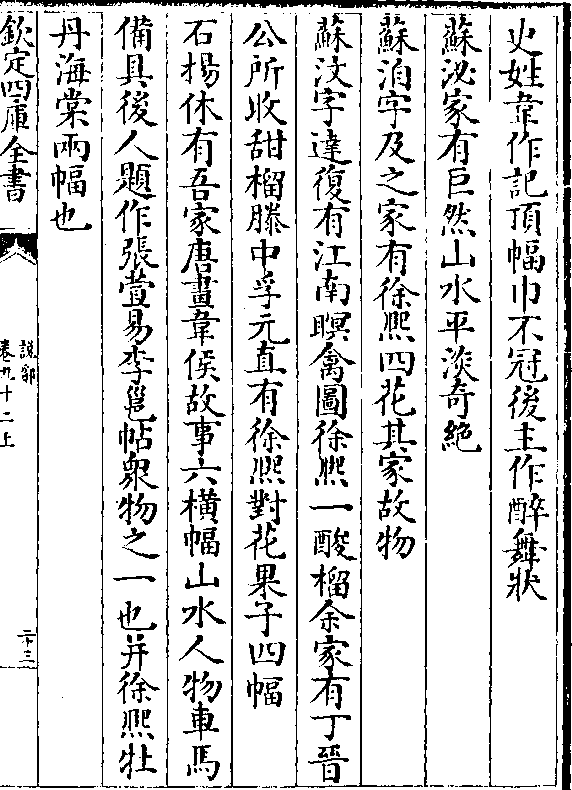 史姓韋作記頂幅巾不冠後主作醉舞狀
蘇泌家有巨然山水平淡奇絶
蘇洎字及之家有徐熙四花其家故物
蘇汶字達復有江南暝禽圖徐熙一酸榴余家有丁晉
公所收甜榴滕中孚元直有徐熙對花果子四幅
石揚休有吾家唐畫韋侯故事六橫幅山水人物車馬
備具後人題作張萱易李邕帖衆物之一也并徐熙牡
丹海棠兩幅也
欽定四庫全書
說郛
卷九十二上
二十三